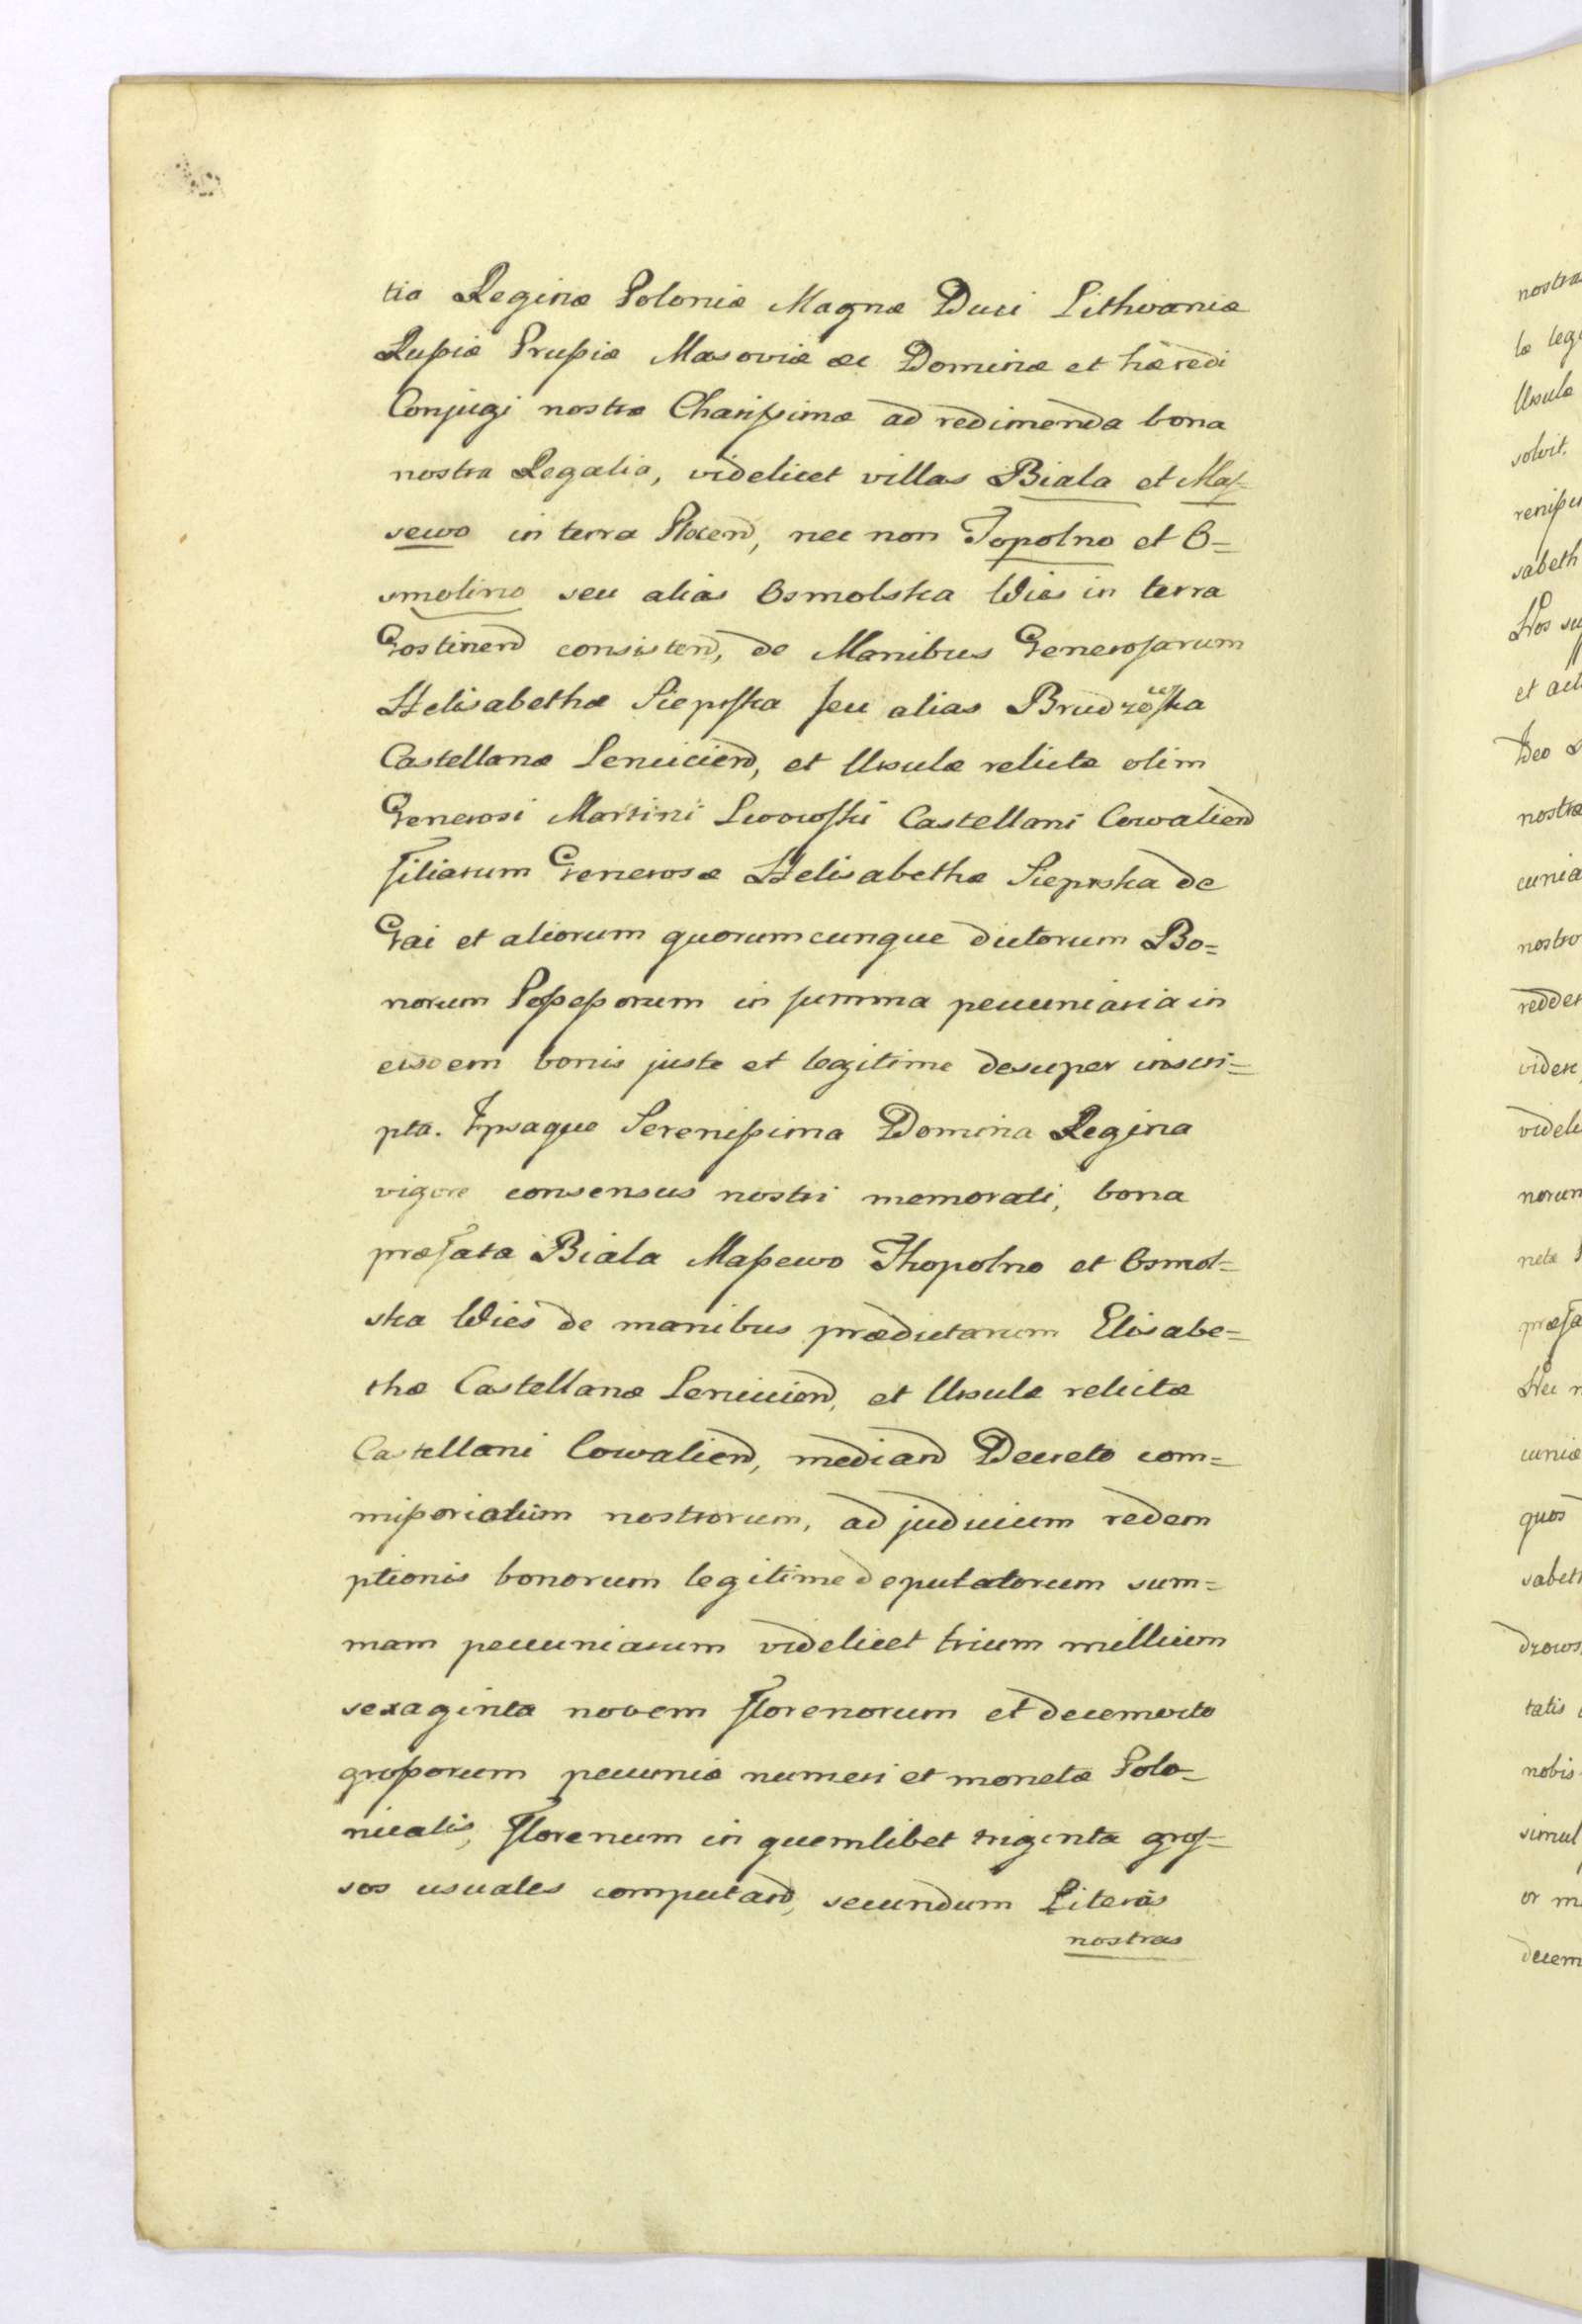 tia Reginæ Poloniæ Magnæ Duci Lithvaniæ
Rußiæ Prußiæ Masoviæ ac Dominæ et hæredi
Conjugi nostræ Charißimæ ad redimenda bona
nostra Regalia, videlicet villas Biala et Maſ-
sewo in terra Plocen, nec non Topolno et O=
smolino seu alias Osmolska Wies in terra
Gostinen consisten, de Manibus Generoſarum
Helisabethæ Sieprſka ſeu alias Brudzewſka
Castellanæ Lenicicien, et Ursulæ relictæ olim
Generosi Martini Lwowſki Castellani Cowalien
filiarum Generosæ Helisabethæ Sieprska de
Gai et aliorum quorumcunque dictorum Bo=
norum Poßeßorum in ſumma pecuniaria in
eisdem bonis juste et legitime desuper inscri=
pta. Ipsaque Serenißima Domina Regina
vigore consensus nostri memorati, bona
præfata Biala Maßewo Thopolno et Osmol=
ska Wies de manibus prædictarum Elisabe=
thæ Castellanæ Lenicien, et Ursulæ relictæ
Castellani Cowalien, median Decreto com=
mißoriatum nostrorum, ad judicium redem
ptionis bonorum legitime deputatorum sum=
mam pecuniarum videlicet trium millium
sexaginta novem florenorum et decemocto
großorum pecuniæ numeri et monetæ Polo=
nicalis, florenum in quemlibet triginta groſ=
sos usuales computan, secundum Literas
nostras
nostra
læ leg
Ursulæ
solvit.
sabeth
et act
Deo
nostræ
cunia
nostro
redder
videre
videli
norum
netæ
præfa
Nec
cuniæ
quos
sabeth
tatis
nobis
simul
or m
decem